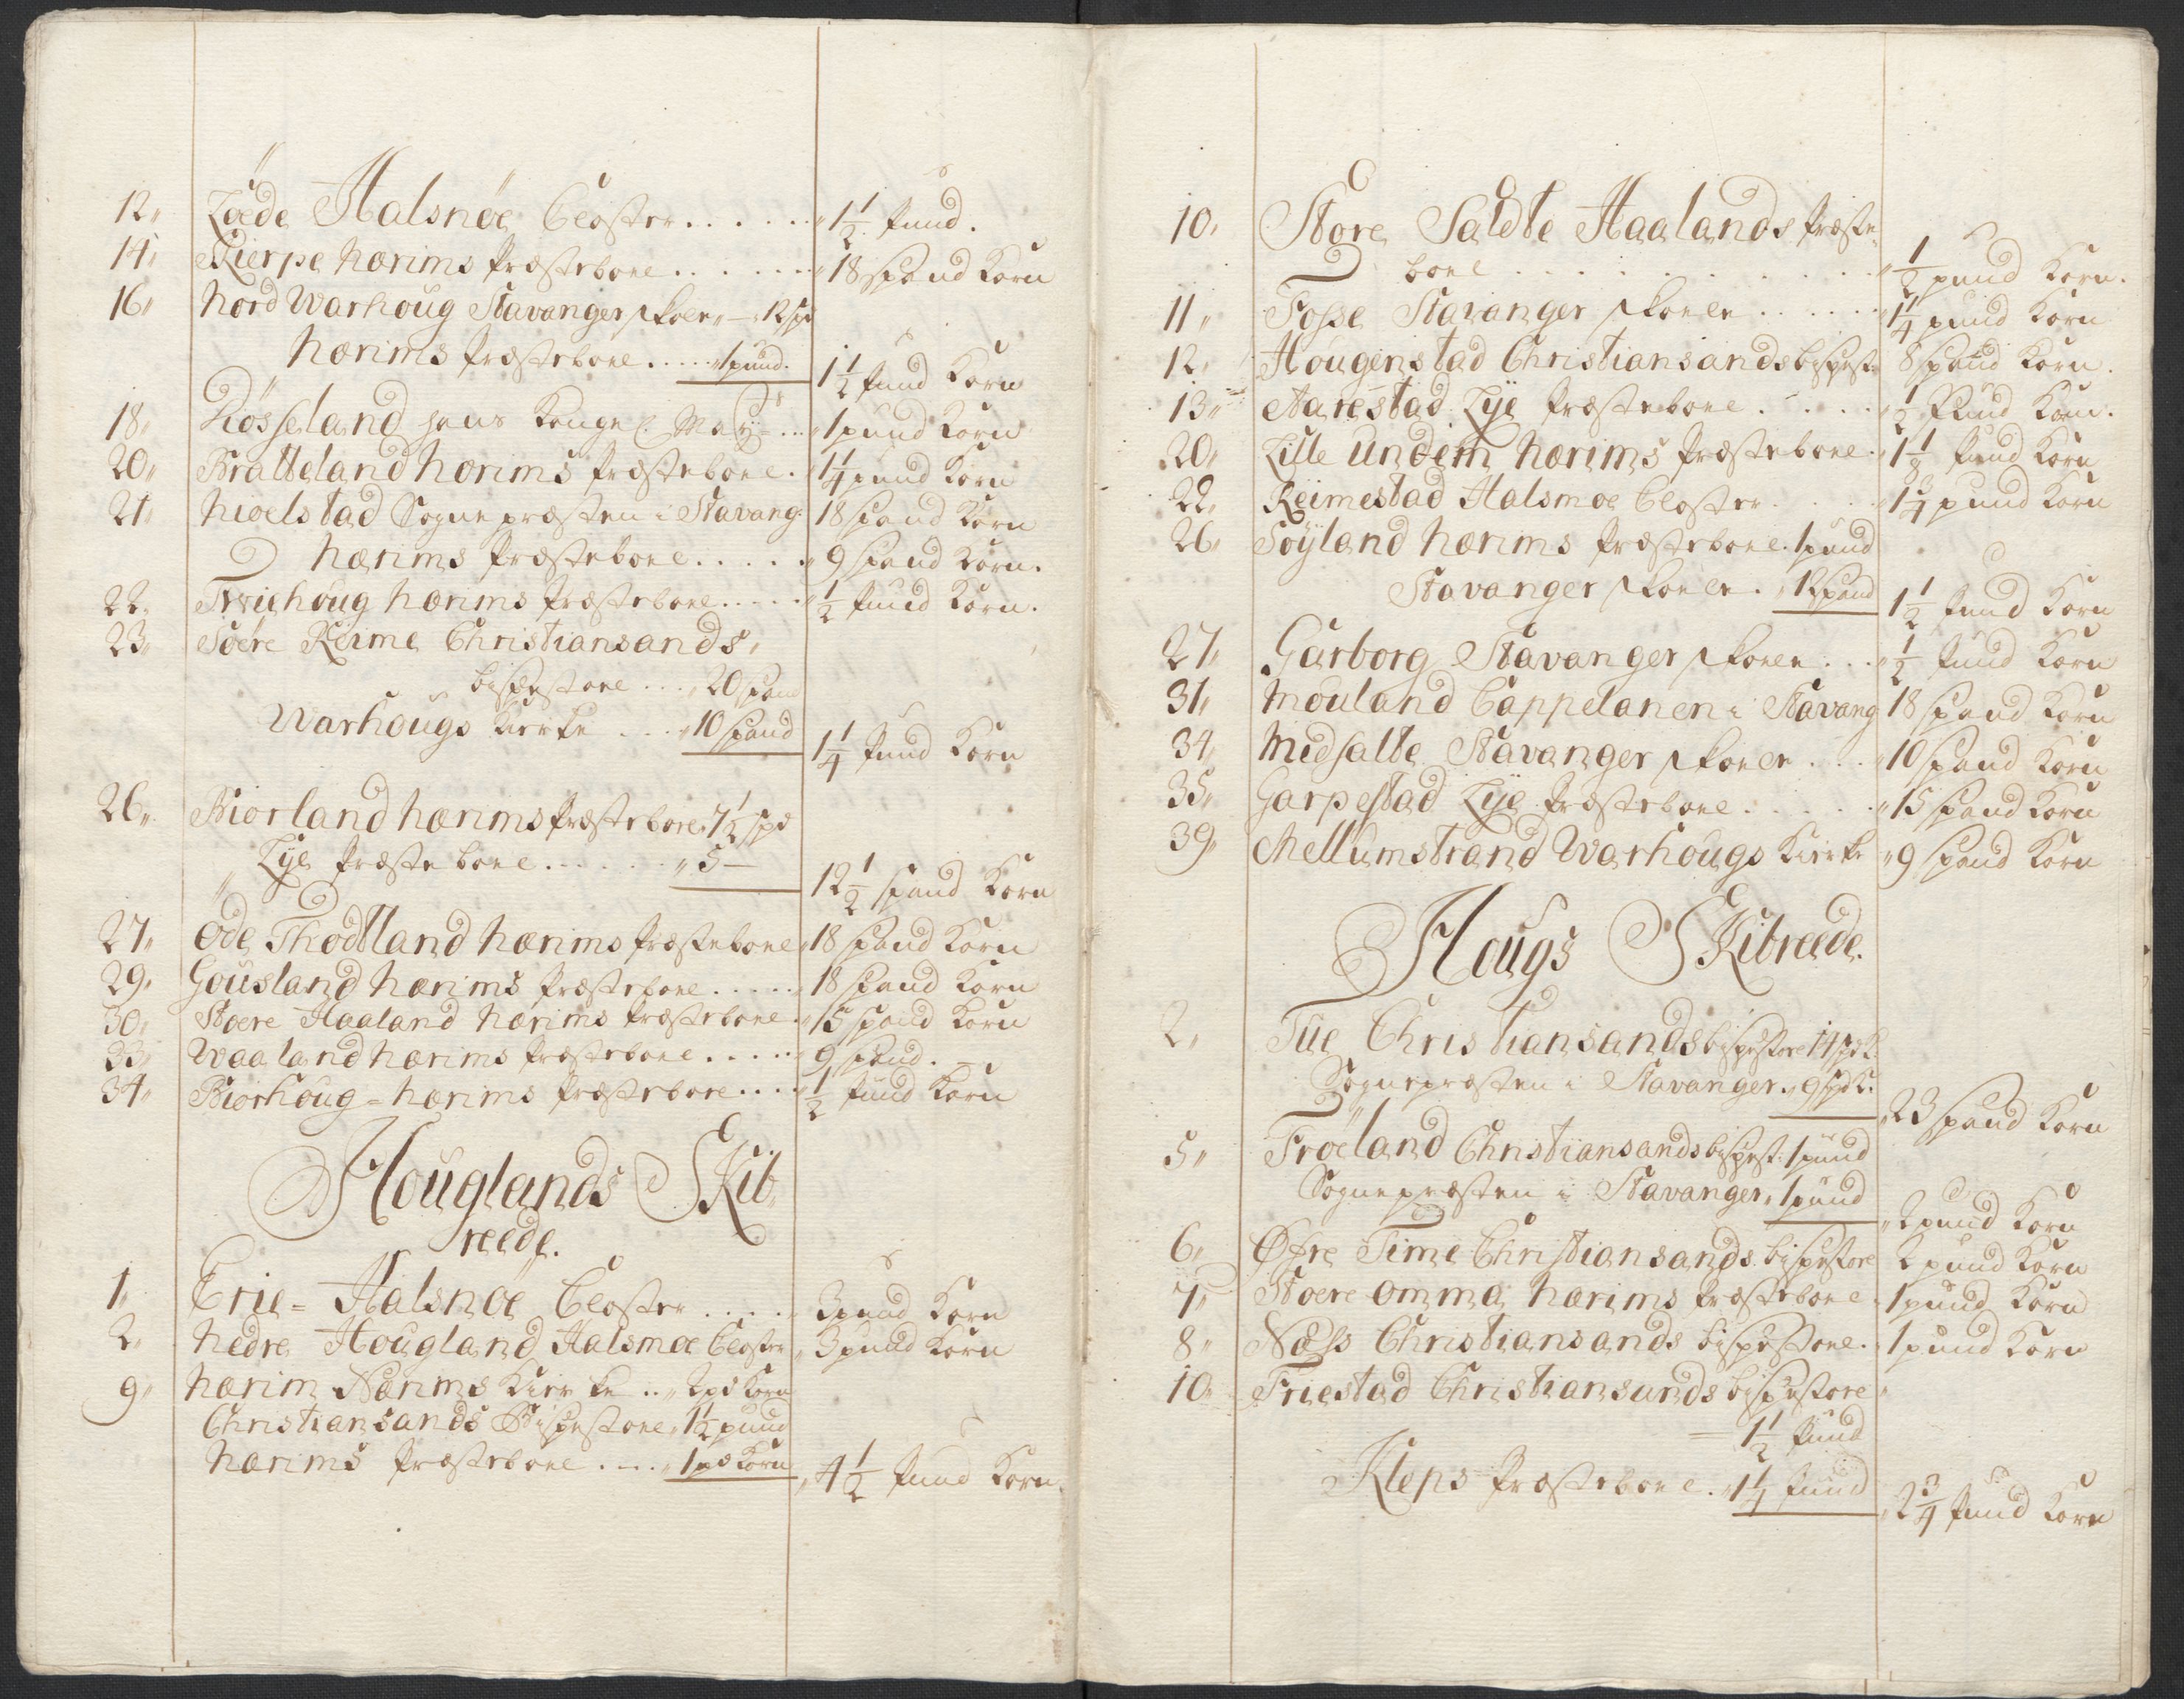 12, Löde Halsnöe Closter . . . . . . 1 1/2 Pund.
14, Kierpe Hærims Præstebole . . . . . . 18 Spand Korn
16, Nord Warhoug Stavanger skolen, — 12 spd
Hærims Præstebole . . . . . 1 pund. 1 1/2 Pund Korn
18, Rösseland hans Kongel. May: . . . 1 pund Korn
20, Bratteland Hærims Præstebole . 1 1/4 pund Korn
21, Nioelstad Sognepræsten i Stavang: 18 Spand Korn
Hærims Præstebole . . . . . 9 Spand Korn.
22, Twiehoug Hærims Præstebole . . . . . 1/2 Pund Korn.
23, Söere Reime Christiansands,
bispestole . . . 20 span
Warhougs Kirke . . . 10 Spand 1 1/4 Pund Korn
26, Biorland Hærims Præstebole, 7 1/2 spd
Lye Præstebole . . . . . . 5 — 12 1/2 Spand Korn
27, Öde Thodtland Hærims Præstebole 18 Spand Korn
29, Gousland Hærims Præstebole . . . . . 18 Spand Korn
30, Stoere Haaland Hærims Præstebole . 15 Spand Korn
33, Waaland Hærims Præstebole . . . . . 9 Spand. —
34, Biorhoug = Hærims Præstebole . . . . 1/2 Pund Korn
Houglands Skib
reede.
1, Erie = Halsnöe Closter . . . . 3 pund Korn
2, Nedre Hougland Halsnöe Closter 3 pund Korn
9, Hærim Nærims Kirke . . 2 pd Korn
Christiansands Bispestole, 1 1/2 pund
Hærims Præstebole . . . . 1 pd Korn 4 1/2 Pund Korn.
10, Store Saldte Haalands Præste
bole . . . . . . . . . 1/2 pund Korn.
11, Fosse Stavanger skolen . . . . . . 1 1/4 pund Korn
12, Hougenstad Christiansands bispest: 8 Spand Korn.
13, Aarestad Lye Præstebole . . . . . 1/2 Pund Korn.
20, Lille Undem Hærims Præstebole . 1 1/8 Pund Korn
22, Reimestad Halsnöe Closter . . . . 1 1/4 pund Korn
26, Söyland Hærims Præstebole . 1 pund
Stavanger skolen . 12 Spand 1 1/2 Pund Korn
27, Garborg Stavanger skolen . . . 1/2 Pund Korn
31, Mouland Cappelanen i Stavang 18 Spand Korn
34, Midsalte Stavanger skolen . . . 10 Spand Korn
35, Garpestad Lye Præstebole . . . . . 15 Spand Korn
39, Mellumstrand Warhougs Kirke 9 Spand Korn
Hougs Skibreede.
2, Tue Christiansands bispestole 14 spd K:
Sognepræsten i Stavanger, 9 spd K: 23 Spand Korn
5, Fröeland Christiansands bispest: 1 pund
Sognepræsten i Stavanger, 1 pund 2 pund Korn
6, Øfre Time Christiansands bispestole 2 pund Korn
7, Stoere Omma Hærims Præstebole 1 pund Korn
8, Næss Christiansands bispestole . 1 pund Korn
10, Friestad Christiansands bispestole
— 1 1/2 Pund
Kleps Præstebole . 1 1/4 Pund 2 3/4 Pund Korn